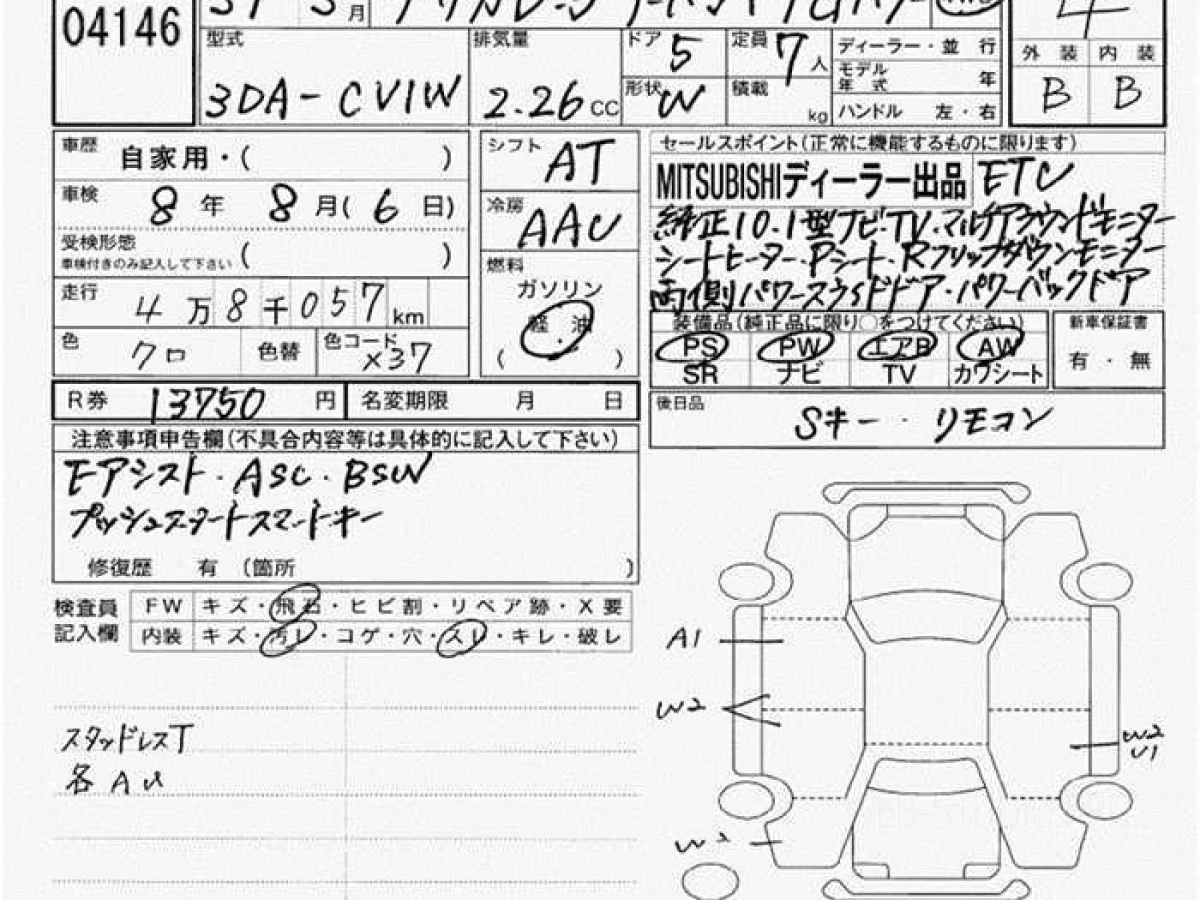 04146
31 5 月
4
型式 3DA-CV1W
排気量 2.26 CC
ドア 5
定員 7 人
形状 W
積載 kg
ディーラー・並 行
モデル年式 年
ハンドル 左・右
外 装 内 装
B B
車歴 自家用・( )
車検 8 年 8 月( 6 日)
受検形態 ( )
車検付きのみ記入して下さい
走行 4 万 8 千 057 km
色 クロ 色替 色コード X37
シフト AT
冷房 AAC
燃料 ガソリン
軽 油
( )
セールスポイント(正常に機能するものに限ります)
MITSUBISHIディーラー出品 ETC
純正10.1型ナビ・TV・マルチアラウンドモニター
シートヒーター・Pシート・Rフリップダウンモニター
両側パワースライドドア・パワーバックドア
装備品(純正品に限り○をつけてください)
PS PW エアB AW
SR ナビ TV カワシート
新車保証書
有・無
R券 13750 円 名変期限 月 日
後日品 Sキー・リモコン
注意事項申告欄(不具合内容等は具体的に記入して下さい)
Eアシスト・ASC・BSW
プッシュスタートスマートキー
修復歴 有 (箇所 )
検査員記入欄
FW キズ・飛石・ヒビ割・リペア跡・X要
内装 キズ・汚レ・コゲ・穴・スレ・キレ・破レ
スタッドレスT
各AU
A1
W2
W2
U1
W2